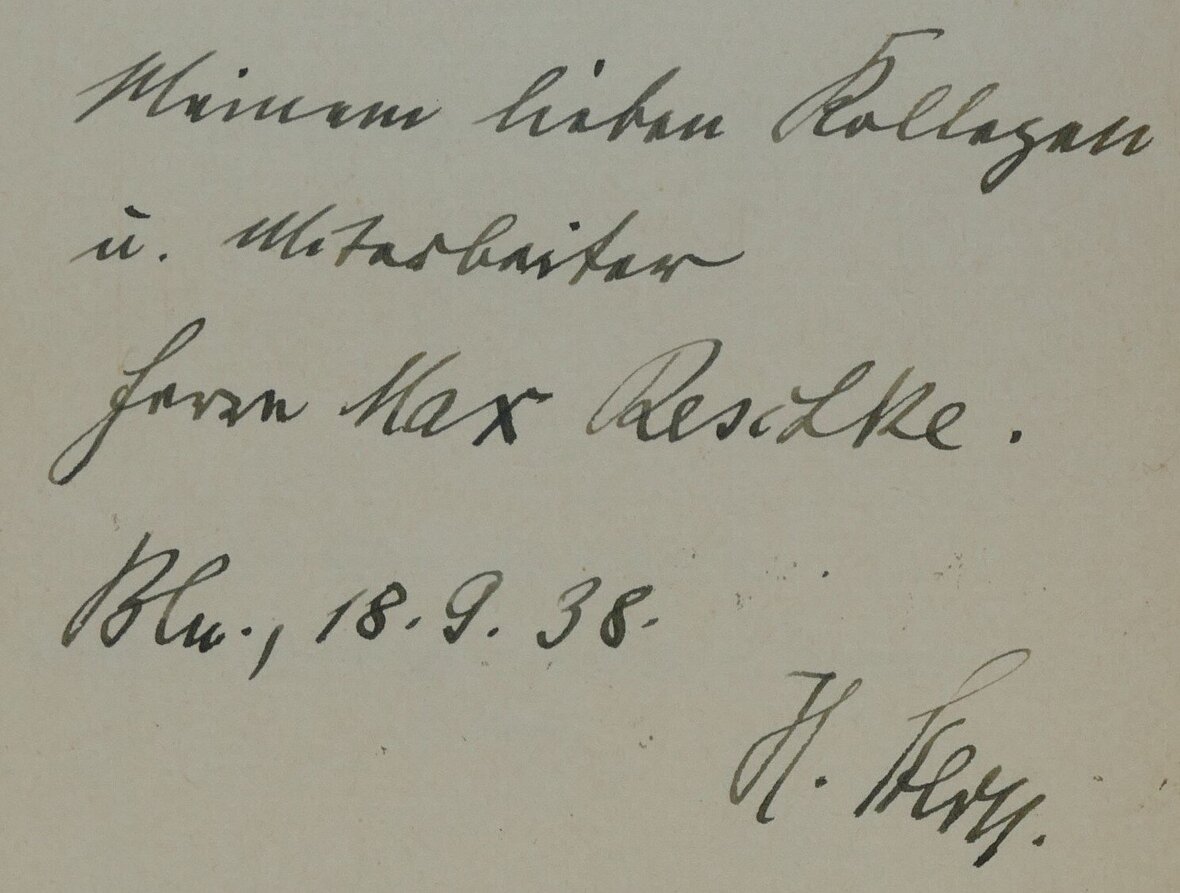 Meinem lieben Kollegen
u. Mitarbeiter
Herrn Max Reschke.
Bln., 18.9.38.
H.